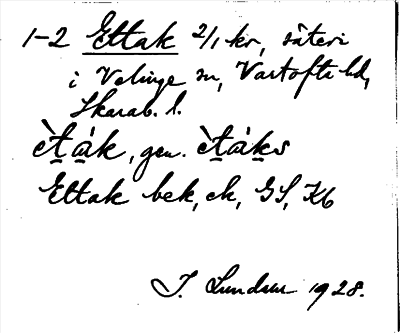 1-2 Ettak 2/1 kr, säteri
i Velinge sn, Vartofta hd,
Skarab. l.
èt̠a̠k, gen. èt̠a̠k̠s
Ettak bek, ek, GS, Kb
J. Lundahl 1928.